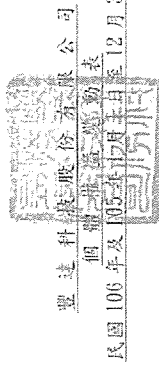 豐達科技股份有限公司
個體權益變動表
民國 106 年及 105 年 1 月 1 日至 12 月 3